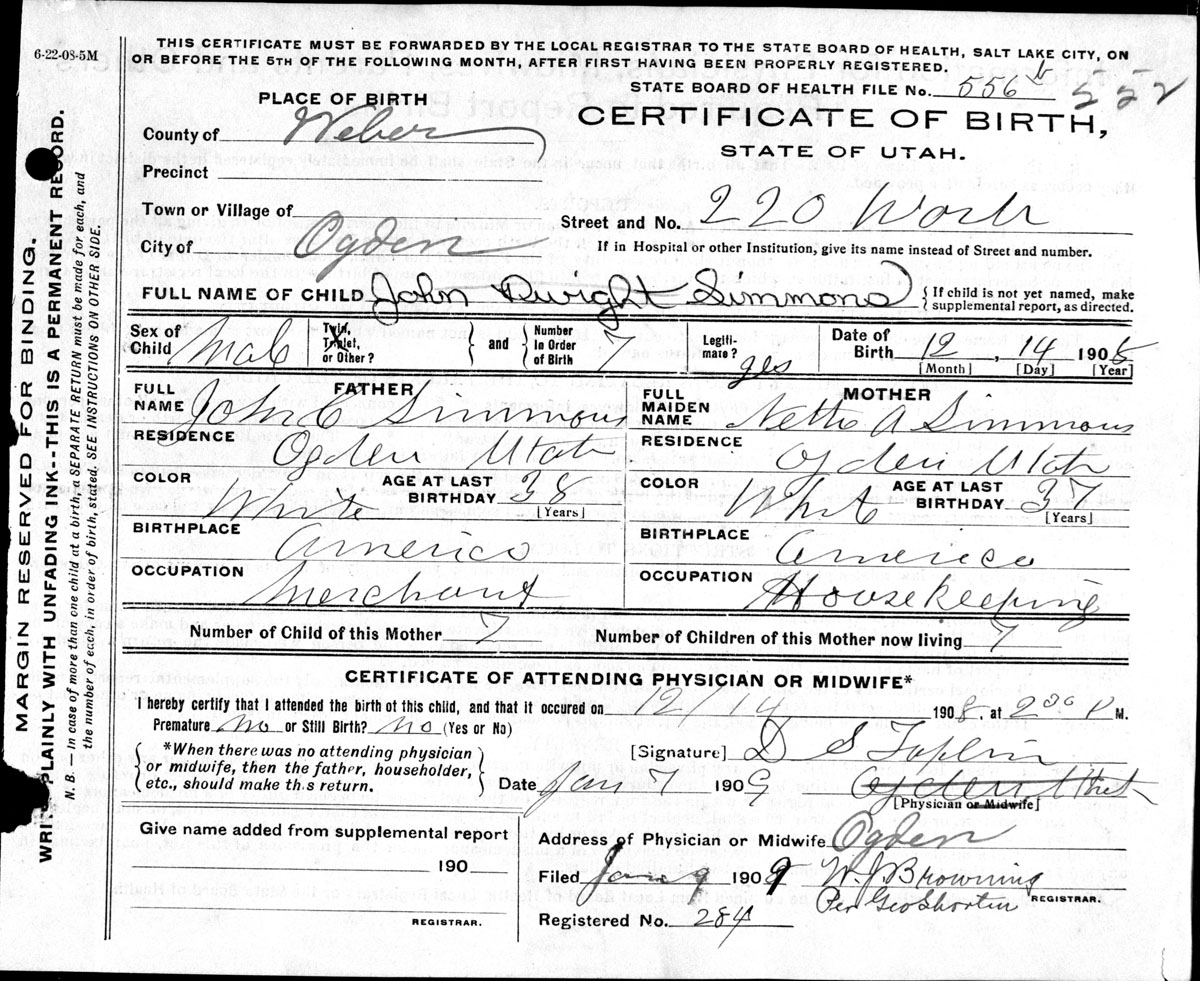 6-22-08-5M
THIS CERTIFICATE MUST BE FORWARDED BY THE LOCAL REGISTRAR TO THE STATE BOARD OF HEALTH, SALT LAKE CITY, ON
OR BEFORE THE 5TH OF THE FOLLOWING MONTH, AFTER FIRST HAVING BEEN PROPERLY REGISTERED.
STATE BOARD OF HEALTH FILE No. 556 b 222
PLACE OF BIRTH
CERTIFICATE OF BIRTH,
STATE OF UTAH.
County of Weber
Precinct
Town or Village of
Street and No. 220
City of Ogden
If in Hospital or other Institution, give its name instead of Street and number.
FULL NAME OF CHILD John Dwight Simmons { If child is not yet named, make
supplemental report, as directed.
Sex of Child Male Twin, Triplet, or Other? { } and { Number in Order of Birth 7 Legiti-mate? yes Date of Birth 12, 14 1908
[Month] [Day] [Year]
FATHER
FULL NAME John C Simmons
RESIDENCE Ogden Utah
COLOR White AGE AT LAST BIRTHDAY 38 [Years]
BIRTHPLACE America
OCCUPATION Merchant
MOTHER
FULL MAIDEN NAME Nettie A Simmons
RESIDENCE Ogden Utah
COLOR White AGE AT LAST BIRTHDAY 37 [Years]
BIRTHPLACE America
OCCUPATION Housekeeping
Number of Child of this Mother 7 Number of Children of this Mother now living 7
CERTIFICATE OF ATTENDING PHYSICIAN OR MIDWIFE*
I hereby certify that I attended the birth of this child, and that it occured on 1908, at 2 30 P M.
Premature no or Still Birth? No (Yes or No)
{ *When there was no attending physician
or midwife, then the father, householder,
etc., should make this return. }
[Signature] D S Taplin
Date Jan 7 1909 Ogden Utah
[Physician or Midwife]
Give name added from supplemental report
190
REGISTRAR.
Address of Physician or Midwife Ogden
Filed Jan 9 1909 W. J Browning
Per Geo Shorten REGISTRAR.
Registered No. 284
MARGIN RESERVED FOR BINDING.
WRITE PLAINLY WITH UNFADING INK--THIS IS A PERMANENT RECORD.
N. B. — In case of more than one child at a birth, a SEPARATE RETURN must be made for each, and
the number of each, in order of birth, stated. SEE INSTRUCTIONS ON OTHER SIDE.